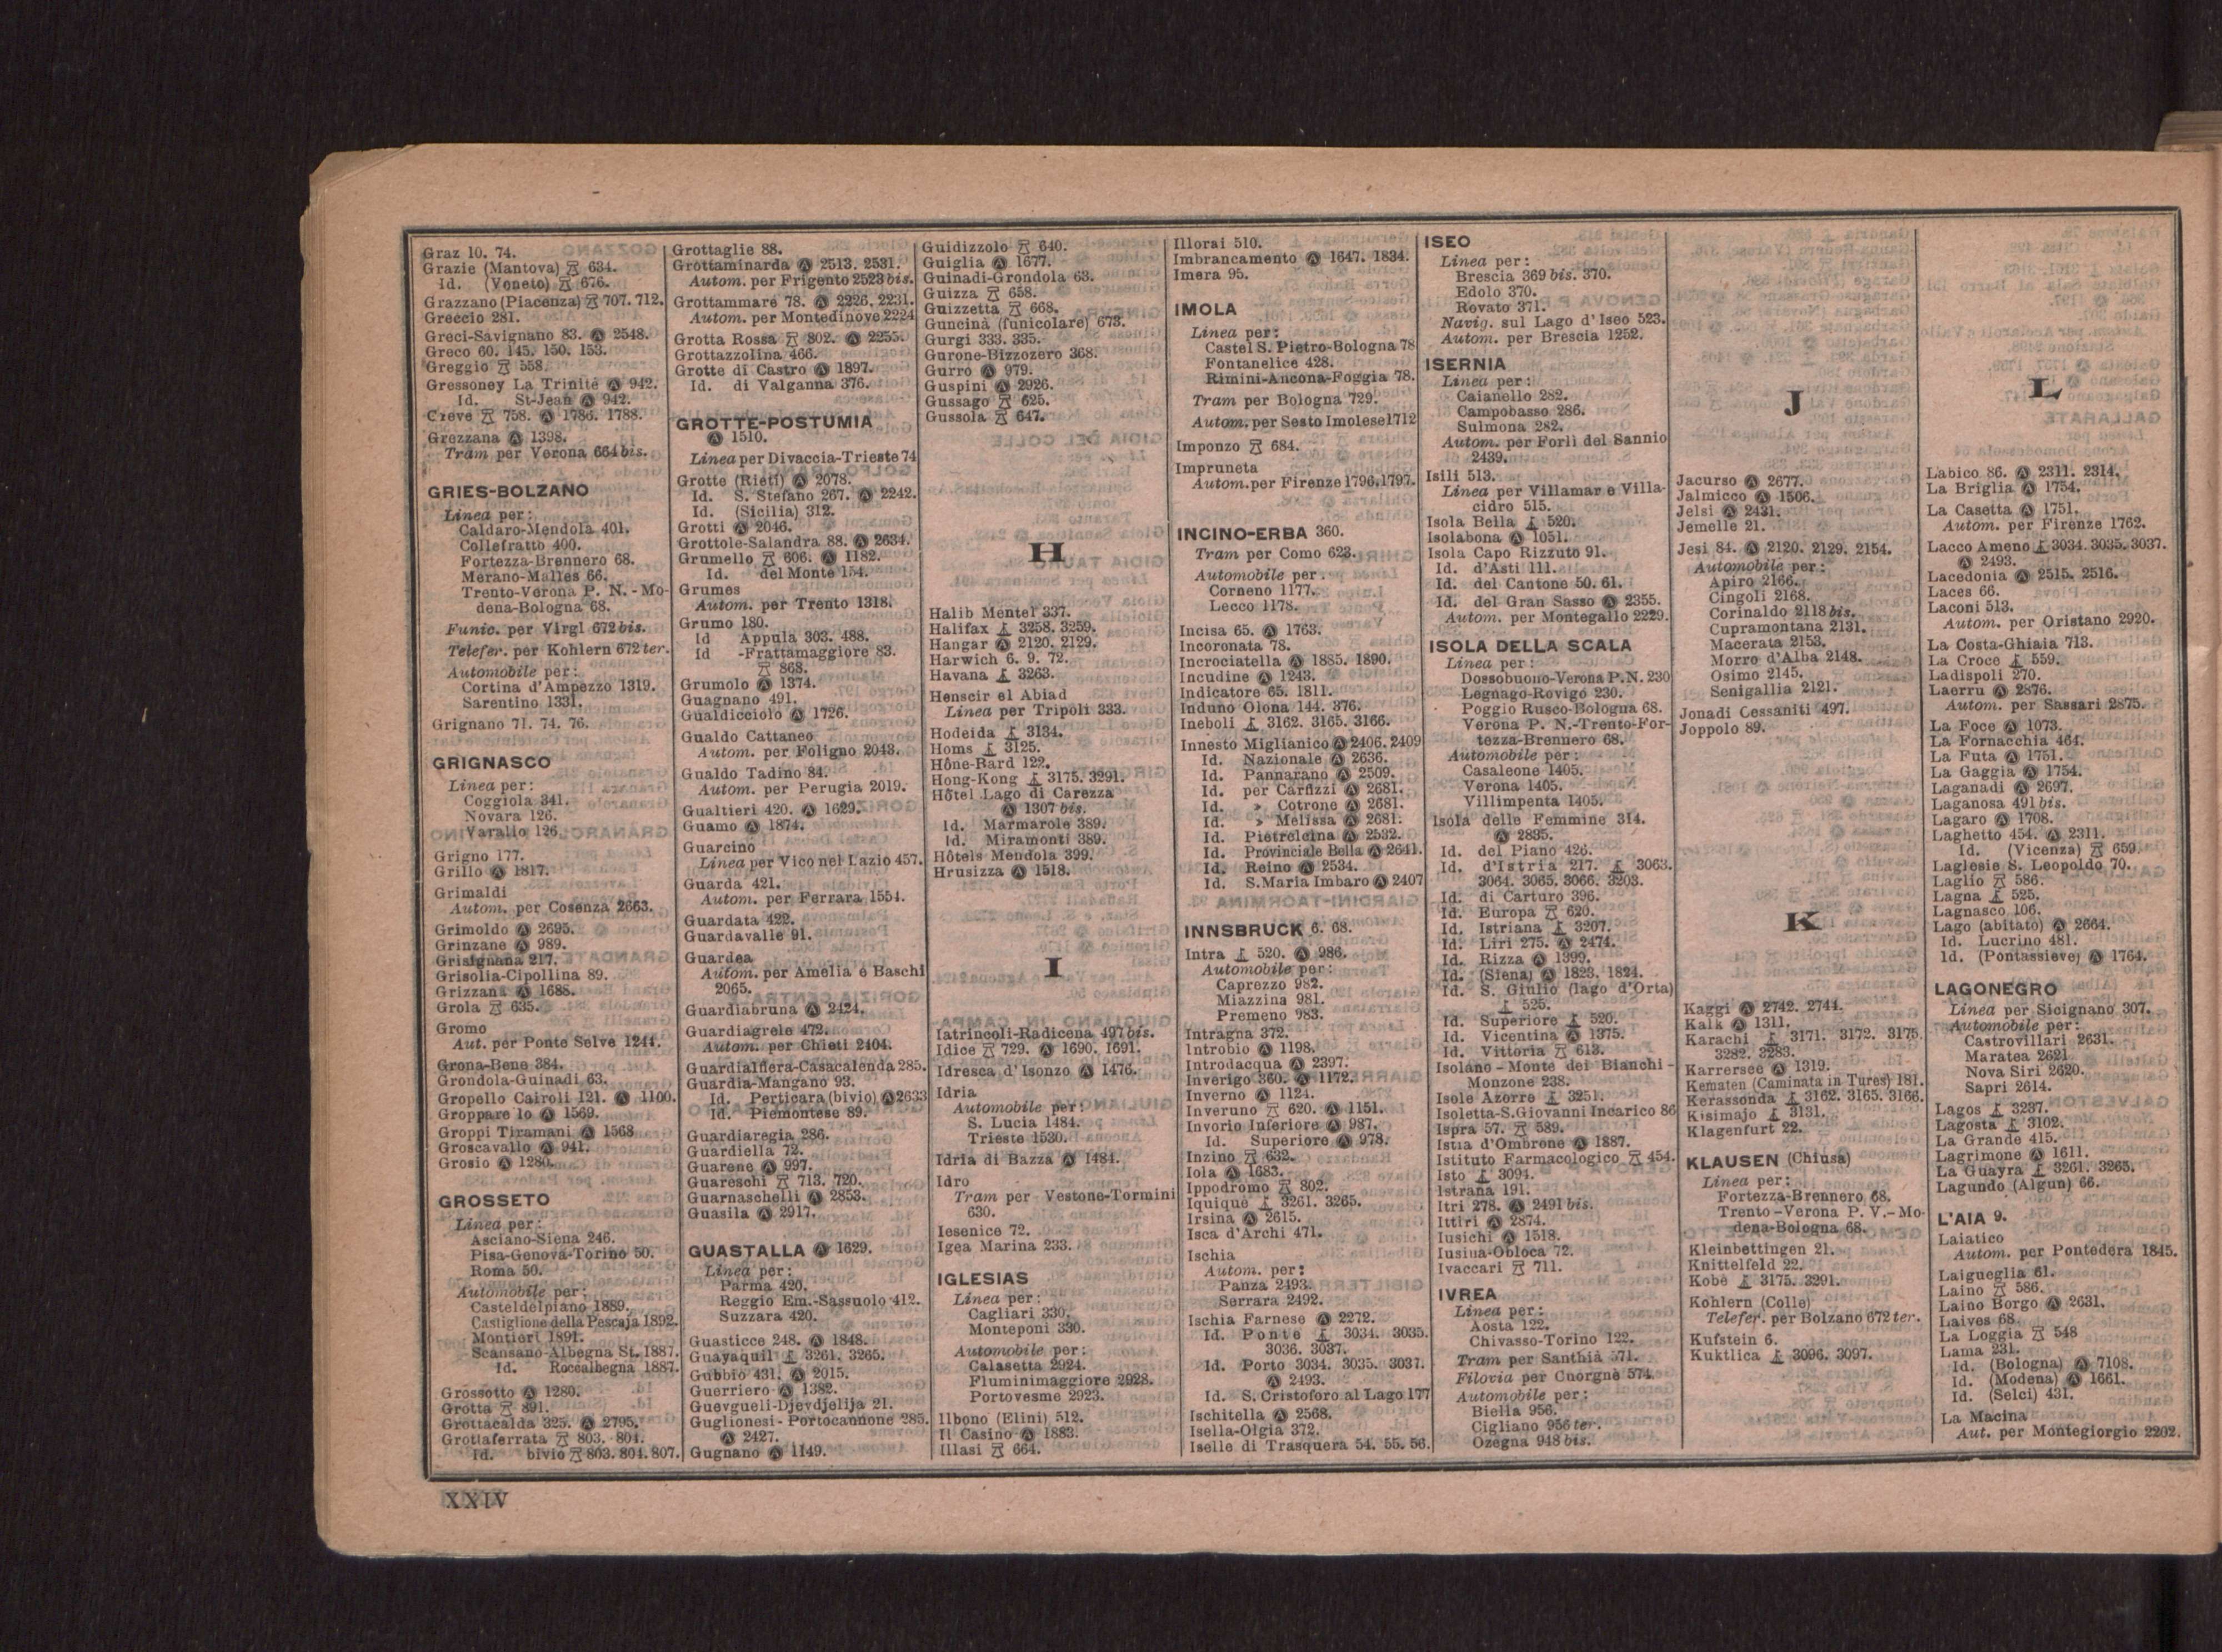 Graz 10. 74.
Grazie (Mantova) 634.
Id. (Veneto) 676.
Grazzano (Piacenza) 707. 712.
Greccio 281.
Greci-Savignano 83. Ⓐ 2548.
Greco 60. 145. 150. 153.
Greggio 558.
Gressoney La Trinité Ⓐ 942.
Id. St-Jean Ⓐ 942.
Greve 758. Ⓐ 1786. 1788.
Grezzana Ⓐ 1398.
Tram per Verona 664 bis.
GRIES-BOLZANO
Linea per:
Caldaro-Mendola 401.
Collefratto 400.
Fortezza-Brennero 68.
Merano-Malles 66.
Trento-Verona P. N. - Mo-
dena-Bologna 68.
Funic. per Virgl 672 bis.
Telefer. per Kohlern 672 ter.
Automobile per:
Cortina d'Ampezzo 1319.
Sarentino 1331.
Grignano 71. 74. 76.
GRIGNASCO
Linea per:
Coggiola 341.
Novara 126.
Varallo 126.
Grigno 177.
Grillo Ⓐ 1817.
Grimaldi
Autom. per Cosenza 2663.
Grimoldo Ⓐ 2695.
Grinzane Ⓐ 989.
Grisignana 217.
Grisolia-Cipollina 89.
Grizzana Ⓐ 1688.
Grola 635.
Gromo
Aut. per Ponte Selve 1244.
Grona-Bene 384.
Grondola-Guinadi 63.
Gropello Cairoli 121. Ⓐ 1100.
Gropparello Ⓐ 1569.
Groppi Tiramani Ⓐ 1568
Groscavallo Ⓐ 941.
Grosio Ⓐ 1280.
GROSSETO
Linea per:
Asciano-Siena 246.
Pisa-Genova-Torino 50.
Roma 50.
Automobile per:
Casteldelpiano 1889.
Castiglione della Pescaja 1892.
Montieri 1891.
Scansano-Albegna St. 1887.
Id. Roccalbegna 1887.
Grossotto Ⓐ 1280.
Grotta 891.
Grottacalda 325. Ⓐ 2795.
Grottaferrata 803. 804.
Id. bivio 803. 804. 807.
Grottaglie 88.
Grottaminarda Ⓐ 2513. 2531.
Autom. per Frigento 2523 bis.
Grottammare 78. Ⓐ 2226. 2231.
Autom. per Montedinove 2224
Grotta Rossa 802. Ⓐ 2255.
Grottazzolina 466.
Grotte di Castro Ⓐ 1897.
Id. di Valganna 376.
GROTTE-POSTUMIA
Ⓐ 1510.
Linea per Divaccia-Trieste 74
Grotte (Rieti) Ⓐ 2078.
Id. S. Stefano 267. Ⓐ 2242.
Id. (Sicilia) 312.
Grotti Ⓐ 2046.
Grottole-Salandra 88. Ⓐ 2634.
Grumello 606. Ⓐ 1182.
Id. del Monte 154.
Grumes
Autom. per Trento 1318.
Grumo 180.
Id Appula 303. 488.
Id -Frattamaggiore 83.
868.
Grumolo Ⓐ 1374.
Guagnano 491.
Gualdicciolo Ⓐ 1726.
Gualdo Cattaneo
Autom. per Foligno 2043.
Gualdo Tadino 84.
Autom. per Perugia 2019.
Gualtieri 420. Ⓐ 1629.
Guamo Ⓐ 1874.
Guarcino
Linea per Vico nel Lazio 457.
Guarda 421.
Autom. per Ferrara 1554.
Guardata 422.
Guardavalle 91.
Guardea
Autom. per Amelia e Baschi
2065.
Guardiabruna Ⓐ 2424.
Guardiagrele 472.
Autom. per Chieti 2404.
Guardialfiera-Casacalenda 285.
Guardia-Mangano 93.
Id. Perticara (bivio) Ⓐ 2633
Id. Piemontese 89.
Guardiaregia 286.
Guardiella 72.
Guarene Ⓐ 997.
Guareschi 713. 720.
Guarnaschelli Ⓐ 2853.
Guasila Ⓐ 2917.
GUASTALLA Ⓐ 1629.
Linea per:
Parma 420.
Reggio Em.-Sassuolo 412.
Suzzara 420.
Guasticce 248. Ⓐ 1848.
Guayaquil 3261. 3265.
Gubbio 431. Ⓐ 2015.
Guerriero Ⓐ 1382.
Guevgueli-Djevdjelija 21.
Guglionesi - Portocannone 285.
Ⓐ 2427.
Gugnano Ⓐ 1149.
Guidizzolo 640.
Guiglia Ⓐ 1677.
Guinadi-Grondola 63.
Guizza 658.
Guizzetta 668.
Guncinà (funicolare) 673.
Gurgi 333. 335.
Gurone-Bizzozero 368.
Gurro Ⓐ 979.
Guspini Ⓐ 2926.
Gussago 625.
Gussola 647.
H
Halib Mentel 337.
Halifax 3258. 3259.
Hangar Ⓐ 2120. 2129.
Harwich 6. 9. 72.
Havana 3263.
Henscir el Abiad
Linea per Tripoli 333.
Hodeida 3134.
Homs 3125.
Hône-Bard 122.
Hong-Kong 3175. 3291.
Hôtel Lago di Carezza
Ⓐ 1307 bis.
Id. Marmarole 389.
Id. Miramonti 389.
Hôtels Mendola 399.
Hrusizza Ⓐ 1518.
I
Iatrincoli-Radicena 497 bis.
Idice 729. Ⓐ 1690. 1691.
Idresca d'Isonzo Ⓐ 1476.
Idria
Automobile per:
S. Lucia 1484.
Trieste 1530.
Idria di Bazza Ⓐ 1484.
Idro
Tram per Vestone-Tormini
630.
Iesenice 72.
Igea Marina 233.
IGLESIAS
Linea per:
Cagliari 330.
Monteponi 330.
Automobile per:
Calasetta 2924.
Fluminimaggiore 2928.
Portovesme 2923.
Ilbono (Elini) 512.
Il Casino Ⓐ 1883.
Illasi 664.
Illorai 510.
Imbrancamento Ⓐ 1647. 1834.
Imera 95.
IMOLA
Linea per:
Castel S. Pietro-Bologna 78
Fontanelice 428.
Rimini-Ancona-Foggia 78.
Tram per Bologna 729.
Autom. per Sesto Imolese 1712
Imponzo 684.
Impruneta
Autom. per Firenze 1796.1797.
INCINO-ERBA 360.
Tram per Como 623.
Automobile per.
Corneno 1177.
Lecco 1178.
Incisa 65. Ⓐ 1763.
Incoronata 78.
Incrociatella Ⓐ 1885. 1890.
Incudine Ⓐ 1243.
Indicatore 65. 1811.
Induno Olona 144. 376.
Ineboli 3162. 3165. 3166.
Innesto Miglianico Ⓐ 2406. 2409
Id. Nazionale Ⓐ 2636.
Id. Pannarano Ⓐ 2509.
Id. per Carfizzi Ⓐ 2681.
Id. » Cotrone Ⓐ 2681.
Id. » Melissa Ⓐ 2681.
Id. Pietrelcina Ⓐ 2532.
Id. Provinciale Bella Ⓐ 2641.
Id. Reino Ⓐ 2534.
Id. S. Maria Imbaro Ⓐ 2407
INNSBRUCK 6. 68.
Intra 520. Ⓐ 986.
Automobile per:
Caprezzo 982.
Miazzina 981.
Premeno 983.
Intragna 372.
Introbio Ⓐ 1198.
Introdacqua Ⓐ 2397.
Inverigo 360. Ⓐ 1172.
Inverno Ⓐ 1124.
Inveruno 620. Ⓐ 1151.
Invorio Inferiore Ⓐ 987.
Id. Superiore Ⓐ 978.
Inzino 632.
Iola Ⓐ 1683.
Ippodromo 802.
Iquique 3261. 3265.
Irsina Ⓐ 2615.
Isca d'Archi 471.
Ischia
Autom. per:
Panza 2493.
Serrara 2492.
Ischia Farnese Ⓐ 2272.
Id. Ponte 3034. 3035.
3036. 3037.
Id. Porto 3034. 3035. 3037.
Ⓐ 2493.
Id. S. Cristoforo al Lago 177
Ischitella Ⓐ 2568.
Isella-Olgia 372.
Iselle di Trasquera 54. 55. 56.
ISEO
Linea per:
Brescia 369 bis. 370.
Edolo 370.
Rovato 371.
Navig. sul Lago d'Iseo 523.
Autom. per Brescia 1252.
ISERNIA
Linea per:
Caianello 282.
Campobasso 286.
Sulmona 282.
Autom. per Forlì del Sannio
2439.
Isili 513.
Linea per Villamar e Villa-
cidro 515.
Isola Bella 520.
Isolabona Ⓐ 1051.
Isola Capo Rizzuto 91.
Id. d'Asti 111.
Id. del Cantone 50. 61.
Id. del Gran Sasso Ⓐ 2355.
Autom. per Montegallo 2229.
ISOLA DELLA SCALA
Linea per:
Dossobuono-Verona P.N. 230
Legnago-Rovigo 230.
Poggio Rusco-Bologna 68.
Verona P. N.-Trento-For-
tezza-Brennero 68.
Automobile per:
Casaleone 1405.
Verona 1405.
Villimpenta 1405.
Isola delle Femmine 314.
Ⓐ 2835.
Id. del Piano 426.
Id. d'Istria 217. 3063.
3064. 3065. 3066. 3203.
Id. di Carturo 396.
Id. Europa 620.
Id. Istriana 3207.
Id. Liri 275. Ⓐ 2474.
Id. Rizza Ⓐ 1399.
Id. (Siena) Ⓐ 1823. 1824.
Id. S. Giulio (lago d'Orta)
525.
Id. Superiore 520.
Id. Vicentina Ⓐ 1375.
Id. Vittoria 613.
Isolano - Monte dei Bianchi -
Monzone 238.
Isole Azorre 3251.
Isoletta-S.Giovanni Incarico 86
Ispra 57. 589.
Istia d'Ombrone Ⓐ 1887.
Istituto Farmacologico 454.
Isto 3094.
Istrana 191.
Itri 278. Ⓐ 2491 bis.
Ittiri Ⓐ 2874.
Iusichi Ⓐ 1518.
Iusina-Obloca 72.
Ivaccari 711.
IVREA
Linea per:
Aosta 122.
Chivasso-Torino 122.
Tram per Santhià 571.
Filovia per Cuorgnè 574.
Automobile per:
Biella 956.
Cigliano 956 ter.
Ozegna 948 bis.
J
Jacurso Ⓐ 2677.
Jalmicco Ⓐ 1506.
Jelsi Ⓐ 2421.
Jemelle 21.
Jesi 84. Ⓐ 2120. 2129. 2154.
Automobile per:
Apiro 2166.
Cingoli 2168.
Corinaldo 2118 bis.
Cupramontana 2131.
Macerata 2153.
Morro d'Alba 2148.
Osimo 2145.
Senigallia 2121.
Jonadi Cessaniti 497.
Joppolo 89.
K
Kaggi Ⓐ 2742. 2744.
Kalk Ⓐ 1311.
Karachi 3171. 3172. 3175.
3282. 3283.
Karrersee Ⓐ 1319.
Kematen (Caminata in Tures) 181.
Kerassonda 3162. 3165. 3166.
Kisimajo 3131.
Klagenfurt 22.
KLAUSEN (Chiusa)
Linea per:
Fortezza-Brennero 68.
Trento - Verona P. V. - Mo-
dena-Bologna 68.
Kleinbettingen 21.
Knittelfeld 22.
Kobè 3175. 3291.
Kohlern (Colle)
Telefer. per Bolzano 672 ter.
Kufstein 6.
Kuktlica 3096. 3097.
L
Labico 86. Ⓐ 2311. 2314.
La Briglia Ⓐ 1754.
La Casetta Ⓐ 1751.
Autom. per Firenze 1762.
Lacco Ameno 3034. 3035. 3037.
Ⓐ 2493.
Lacedonia Ⓐ 2515. 2516.
Laces 66.
Laconi 513.
Autom. per Oristano 2920.
La Costa-Ghiaia 713.
La Croce 559.
Ladispoli 270.
Laerru Ⓐ 2876.
Autom. per Sassari 2875.
La Foce Ⓐ 1073.
La Fornacchia 464.
La Futa Ⓐ 1751.
La Gaggia Ⓐ 1754.
Laganadi Ⓐ 2697.
Laganosa 491 bis.
Lagaro Ⓐ 1708.
Laghetto 454. Ⓐ 2311.
Id. (Vicenza) 659.
Laglesie S. Leopoldo 70.
Laglio 586.
Lagna 525.
Lagnasco 106.
Lago (abitato) Ⓐ 2664.
Id. Lucrino 481.
Id. (Pontassieve) Ⓐ 1764.
LAGONEGRO
Linea per Sicignano 307.
Automobile per:
Castrovillari 2631.
Maratea 2621
Nova Siri 2620.
Sapri 2614.
Lagos 3237.
Lagosta 3102.
La Grande 415.
Lagrimone Ⓐ 1611.
La Guayra 3261. 3265.
Lagundo (Algun) 66.
L'AIA 9.
Laiatico
Autom. per Pontedera 1845.
Laigueglia 61.
Laino 586.
Laino Borgo Ⓐ 2631.
Laives 68
La Loggia 548
Lama 231.
Id. (Bologna) Ⓐ 7108.
Id. (Modena) Ⓐ 1661.
Id. (Selci) 431.
La Macina
Aut. per Montegiorgio 2202.
XXIV